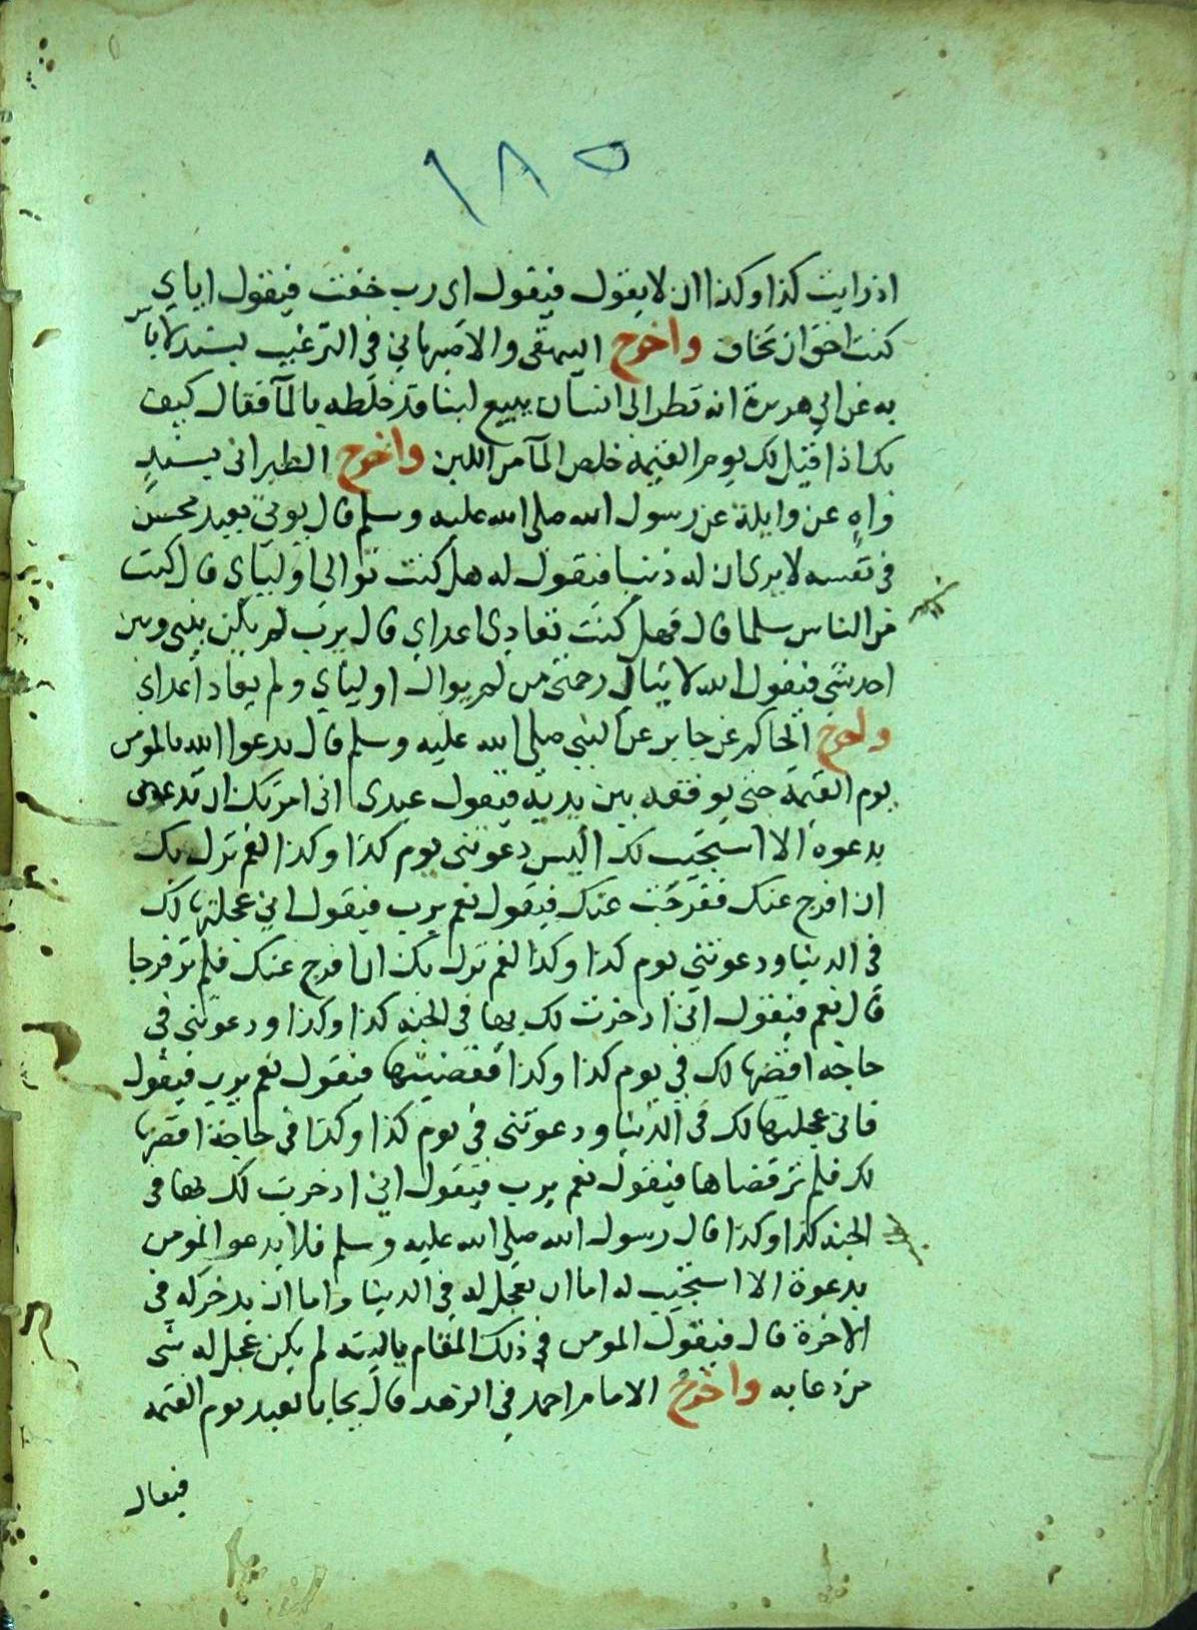 ١٨٥
اذ رايت كذا وكذا ان لا يقول فيقول اى رب خفت فيقول اياي
كنت احق ان تخاف واخرج البيهقى والاصبهاني في الترغيب بسند لا باس
به عن ابي هريرة انه نظر الى انسان يبيع لبنا قد خلطه بالمآ فقال كيف
بك اذا قيل لك يوم القيمة خلص المآ من اللبن واخرج الطبرانى بسند
واهٍ عن واثلة عن رسول الله صلى الله عليه وسلم قال يوتى بعبد محسن
في نفسه لا يرى ان له ذنبا فيقول له هل كنت توالى اوليآى قال كنت
من الناس سلما قال فهل كنت تعادى اعداي قال يرب لم يكن بينى وبين
احد شى فيقول الله لا ينال رحمتى من لم يوال اولياي ولم يعاد اعداى
واخرج الحاكم عن جابر عن النبي صلى الله عليه وسلم قال يدعوا الله بالمومن
يوم القيمة حتى يوقفه بين يديه فيقول عبدى انى امرتك ان تدعونى
بدعوة الا استجيب لك اليس دعوتنى يوم كذا وكذا لغم نزل بك
ان افرج عنك ففرجت عنك فيقول نعم يرب فيقول اني عجلتها لك
في الدنيا ودعوتني يوم كذا وكذا لغم نزل بك ان افرج عنك فلم تر فرجا
قال نعم فيقول انى ادخرت لك بها في الجنة كذا وكذا ودعوتنى في
حاجه اقضها لك في يوم كذا وكذا فقضيتها فيقول نعم يرب فيقول
فانى عجلتها لك في الدنيا ودعوتنى في يوم كذا وكذا في حاجة اقضها
لك فلم تر قضاها فيقول نعم يرب فيقول اني ادخرت لك بها في
الجنة كذا وكذا قال رسول الله صلى الله عليه وسلم فلا يدعو المومن
بدعوة الا استجيب له اما ان تعجل له في الدنيا واما ان يدخر له في
الاخرة قال فيقول المومن في ذلك المقام ياليته لم يكن عجل له شى
من دعايه واخرج الامام احمد في الزهد قال يجا بالعبد يوم القيمة
فيقال